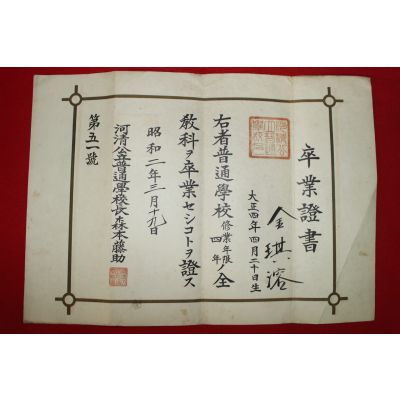 卒業證書
金琪溶
大正四年四月二十日生
右者普通學校修業年限四年ノ全
教科ヲ卒業セシコトヲ證ス
昭和二年三月十九日
河清公立普通學校長森本藤助
第五一號